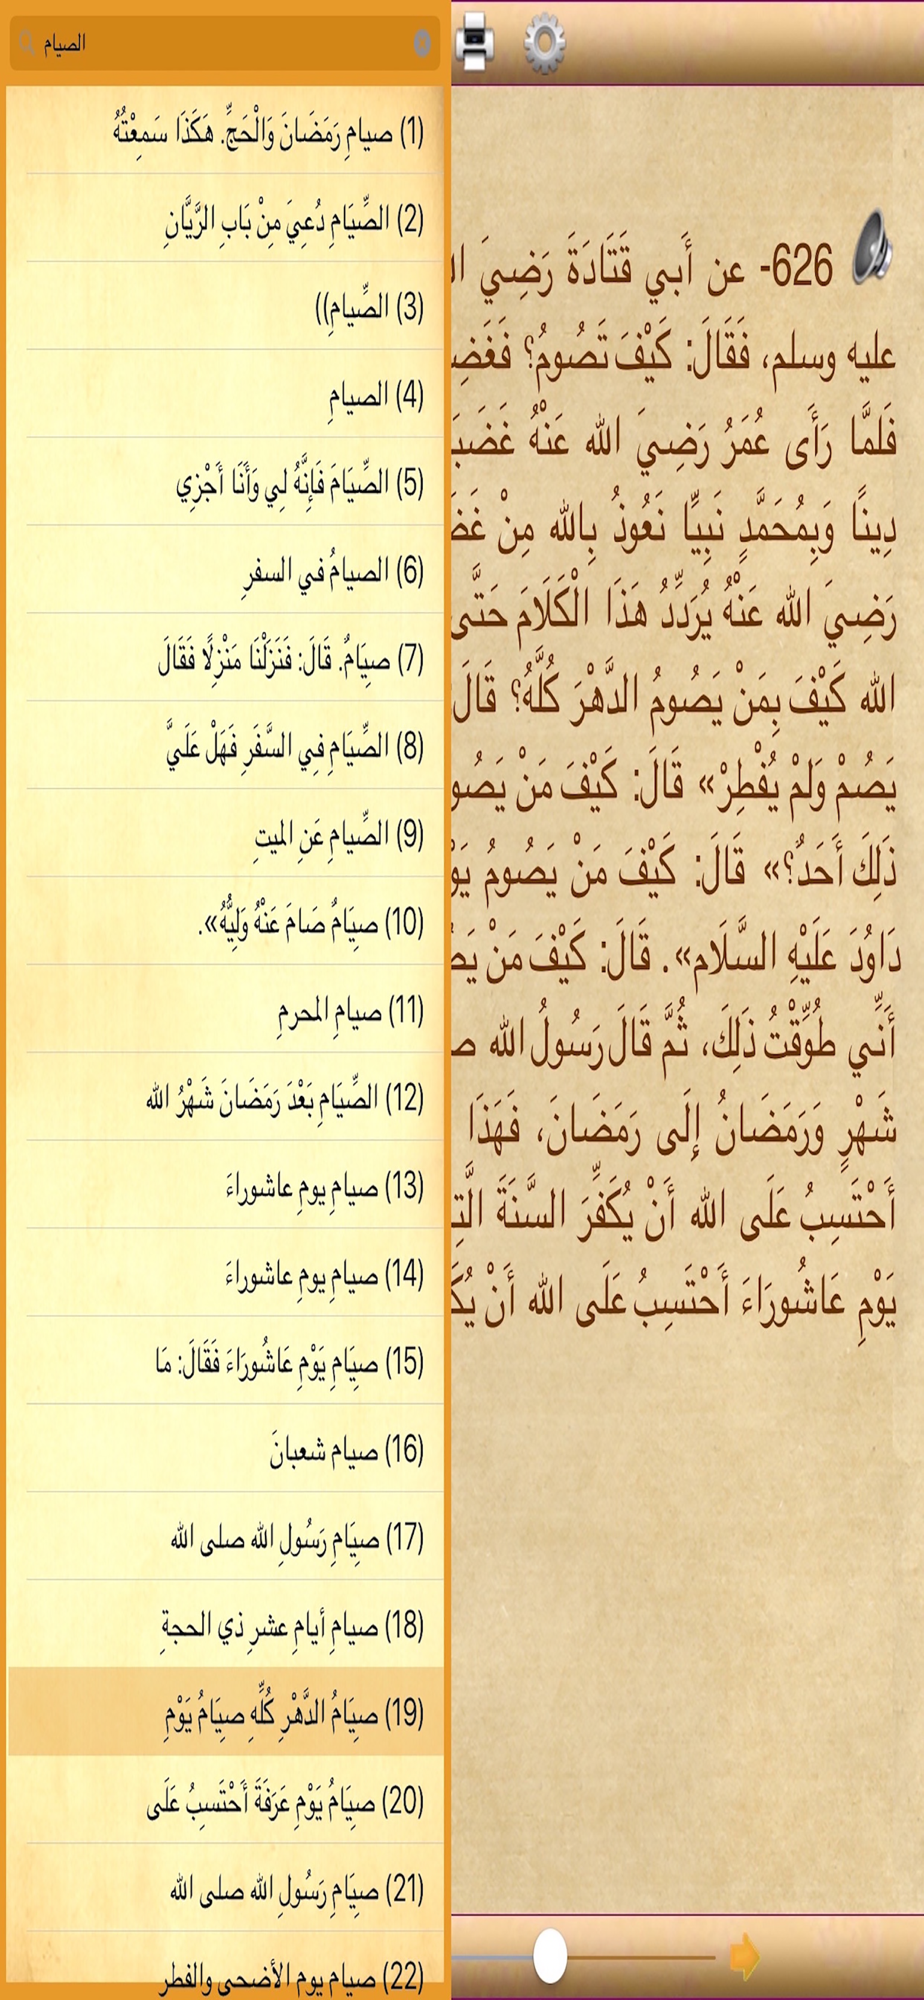 الصيام
(1) صيامِ رَمَضَانَ وَالْحَجِّ. هَكَذَا سَمِعْتُهُ
(2) الصِّيَامِ دُعِيَ مِنْ بَابِ الرَّيَّانِ
(3) الصِّيامِ))
(4) الصيامِ
(5) الصِّيَامَ فَإِنَّهُ لِي وَأَنَا أَجْزِي
(6) الصيامُ في السفرِ
(7) صِيَامٌ. قَالَ: فَنَزَلْنَا مَنْزِلًا فَقَالَ
(8) الصِّيَامِ فِي السَّفَرِ فَهَلْ عَلَيَّ
(9) الصِّيامِ عَنِ الميتِ
(10) صِيَامٌ صَامَ عَنْهُ وَلِيُّهُ».
(11) صيامِ المحرمِ
(12) الصِّيَامِ بَعْدَ رَمَضَانَ شَهْرُ الله
(13) صيامِ يومِ عاشوراءَ
(14) صيامِ يومِ عاشوراءَ
(15) صِيَامِ يَوْمِ عَاشُورَاءَ فَقَالَ: مَا
(16) صيام شعبانَ
(17) صِيَامِ رَسُولِ الله صلى الله
(18) صيامِ أيامِ عشرِ ذي الحجةِ
(19) صِيَامُ الدَّهْرِ كُلِّهِ صِيَامُ يَوْمِ
(20) صِيَامُ يَوْمِ عَرَفَةَ أَحْتَسِبُ عَلَى
(21) صِيَامِ رَسُولِ الله صلى الله
(22) صيام يوم الأضحى والفطر
626- عن أَبي قَتَادَةَ رَضِيَ
عليه وسلم، فَقَالَ: كَيْفَ تَصُومُ؟
فَلمَّا رَأَى عُمَرُ رَضِيَ الله عَنْهُ
دِينًا وَبِمُحَمَّدٍ نَبِيًّا نَعُوذُ بِالله مِنْ
رَضِيَ الله عَنْهُ يُرَدِّدُ هَذَا الْكَلَامَ حَتَّى
الله كَيْفَ بِمَنْ يَصُومُ الدَّهْرَ كُلَّهُ؟ قَالَ
يَصُمْ وَلَمْ يُفْطِرْ» قَالَ: كَيْفَ مَنْ
ذَلِكَ أَحَدٌ؟» قَالَ: كَيْفَ مَنْ يَصُومُ
دَاوُدَ عَلَيْهِ السَّلَام». قَالَ: كَيْفَ مَنْ
أَنِّي طُوِّقْتُ ذَلِكَ، ثُمَّ قَالَ رَسُولُ الله
شَهْرٍ وَرَمَضَانُ إِلَى رَمَضَانَ، فَهَذَا
أَحْتَسِبُ عَلَى الله أَنْ يُكَفِّرَ السَّنَةَ
يَوْمِ عَاشُورَاءَ أَحْتَسِبُ عَلَى الله أَنْ